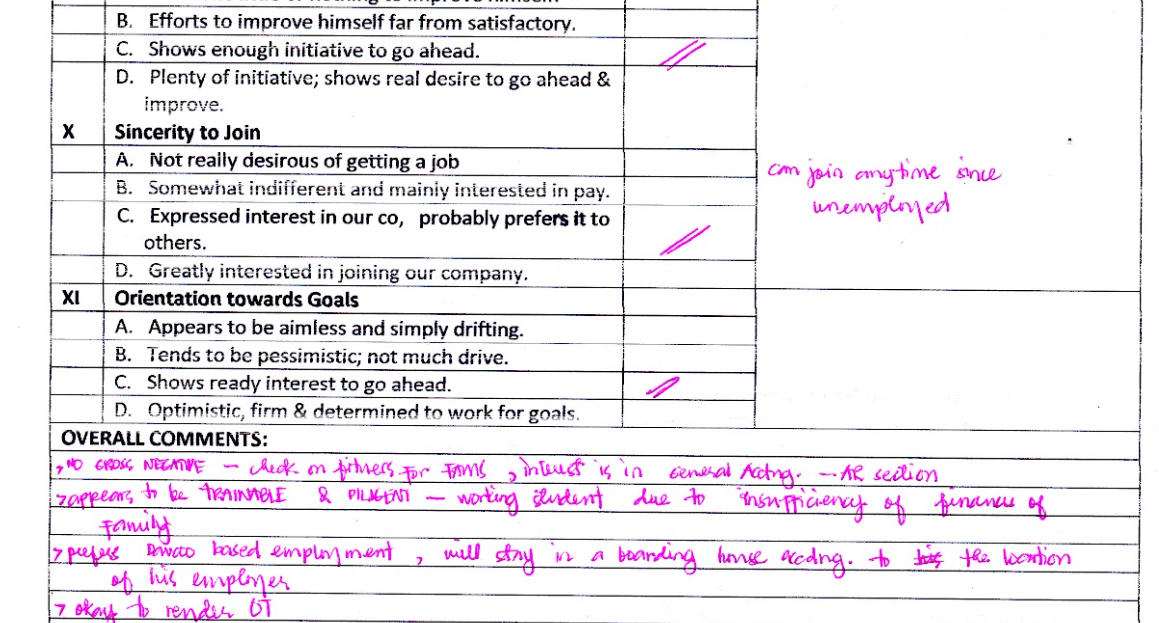 B. Efforts to improve himself far from satisfactory.
C. Shows enough initiative to go ahead.
D. Plenty of initiative; shows real desire to go ahead &
improve.
X Sincerity to Join
A. Not really desirous of getting a job
B. Somewhat indifferent and mainly interested in pay.
C. Expressed interest in our co, probably prefers it to
others.
D. Greatly interested in joining our company.
can join anytime since
unemployed
XI Orientation towards Goals
A. Appears to be aimless and simply drifting.
B. Tends to be pessimistic; not much drive.
C. Shows ready interest to go ahead.
D. Optimistic, firm & determined to work for goals.
OVERALL COMMENTS:
> NO GROSS NEGATIVE – check on fitness for , interest is in General Acctng. – AR section
> appears to be TRAINABLE & DILIGENT – working student due to insufficiency of finances of
family
> prefers Davao based employment, will stay in a boarding house accdng. to the location
of his employer
> okay to render OT